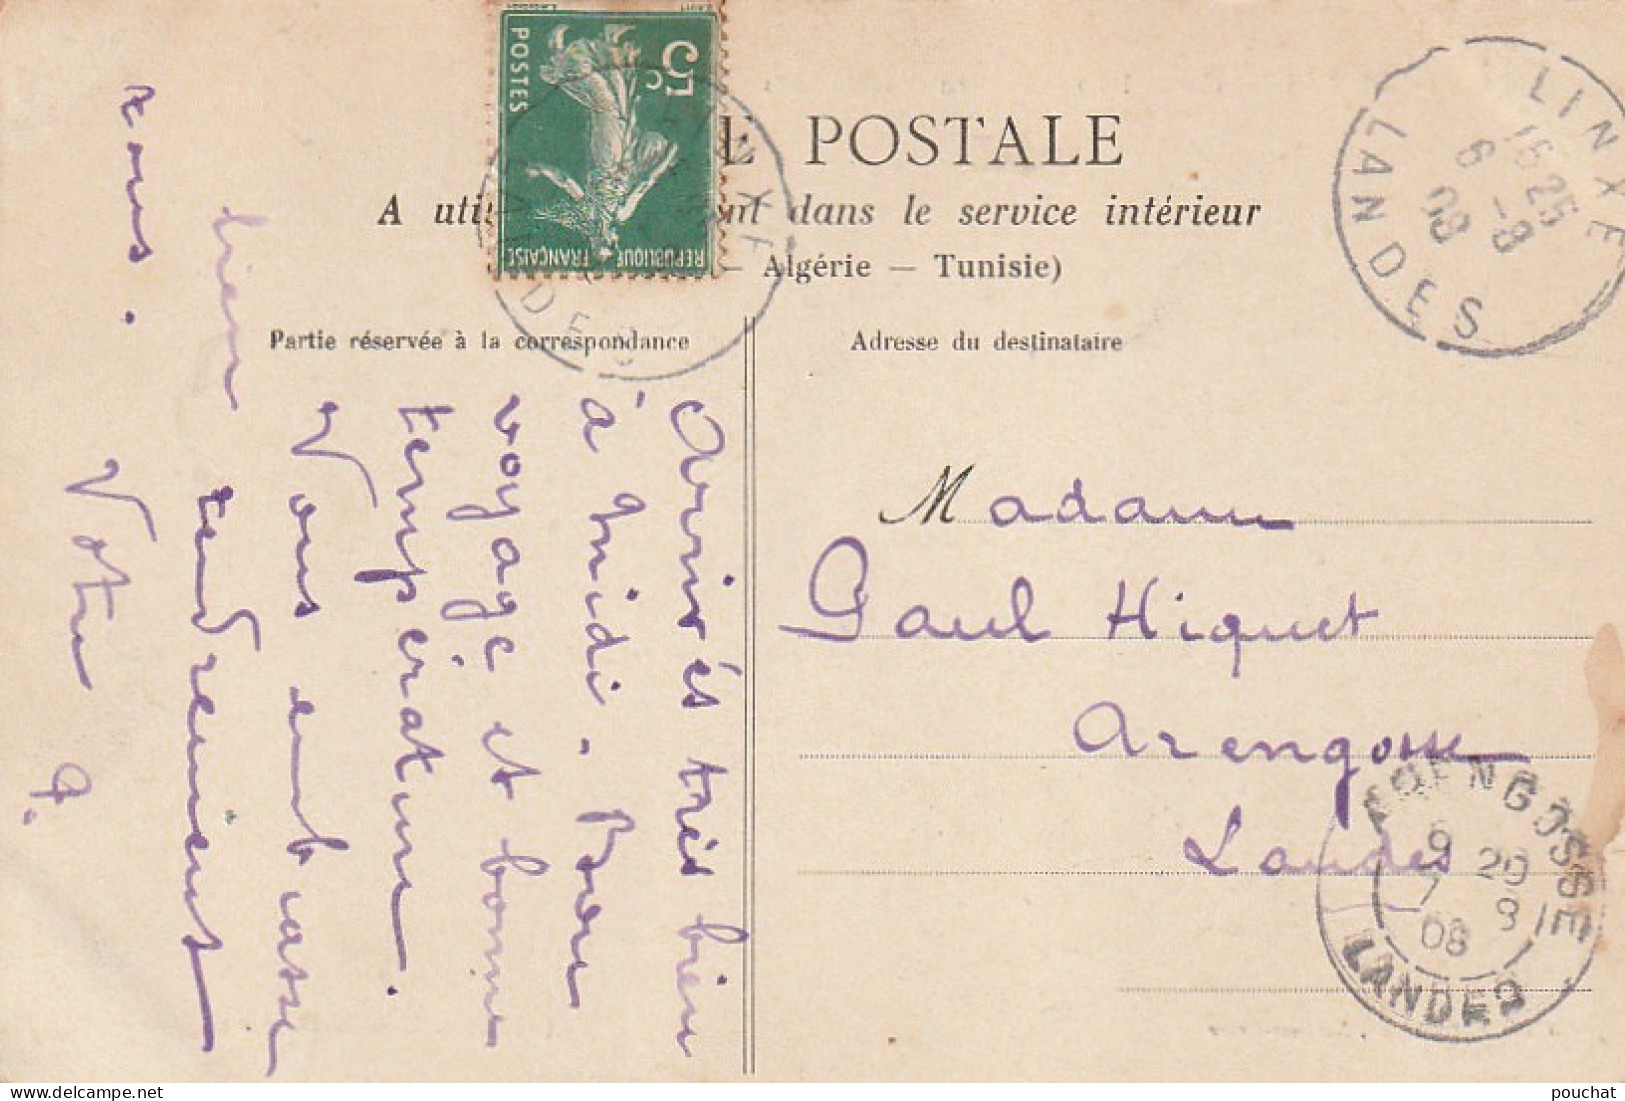 E POSTALE
A uti nt dans le service intérieur
— Algérie — Tunisie)
Partie réservée à la correspondance
Adresse du destinataire
5c
POSTES
REPUBLIQUE FRANÇAISE
LINXE
16 25
6 -8
08
LANDES
LINXE
LANDES
Arrivés très bien
à midi. Bon
voyage et bonne
température.
Vous embrasse
bien tendrement
Votre
tous.
Madame
Paul Hiquet
Arengosse
Landes
ARENGOSSE
9 20
7 8
08
LANDES
pouchat